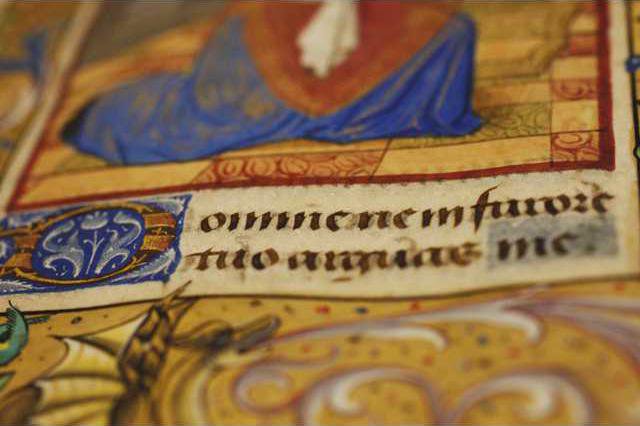 Domine ne in furore
tuo arguas me